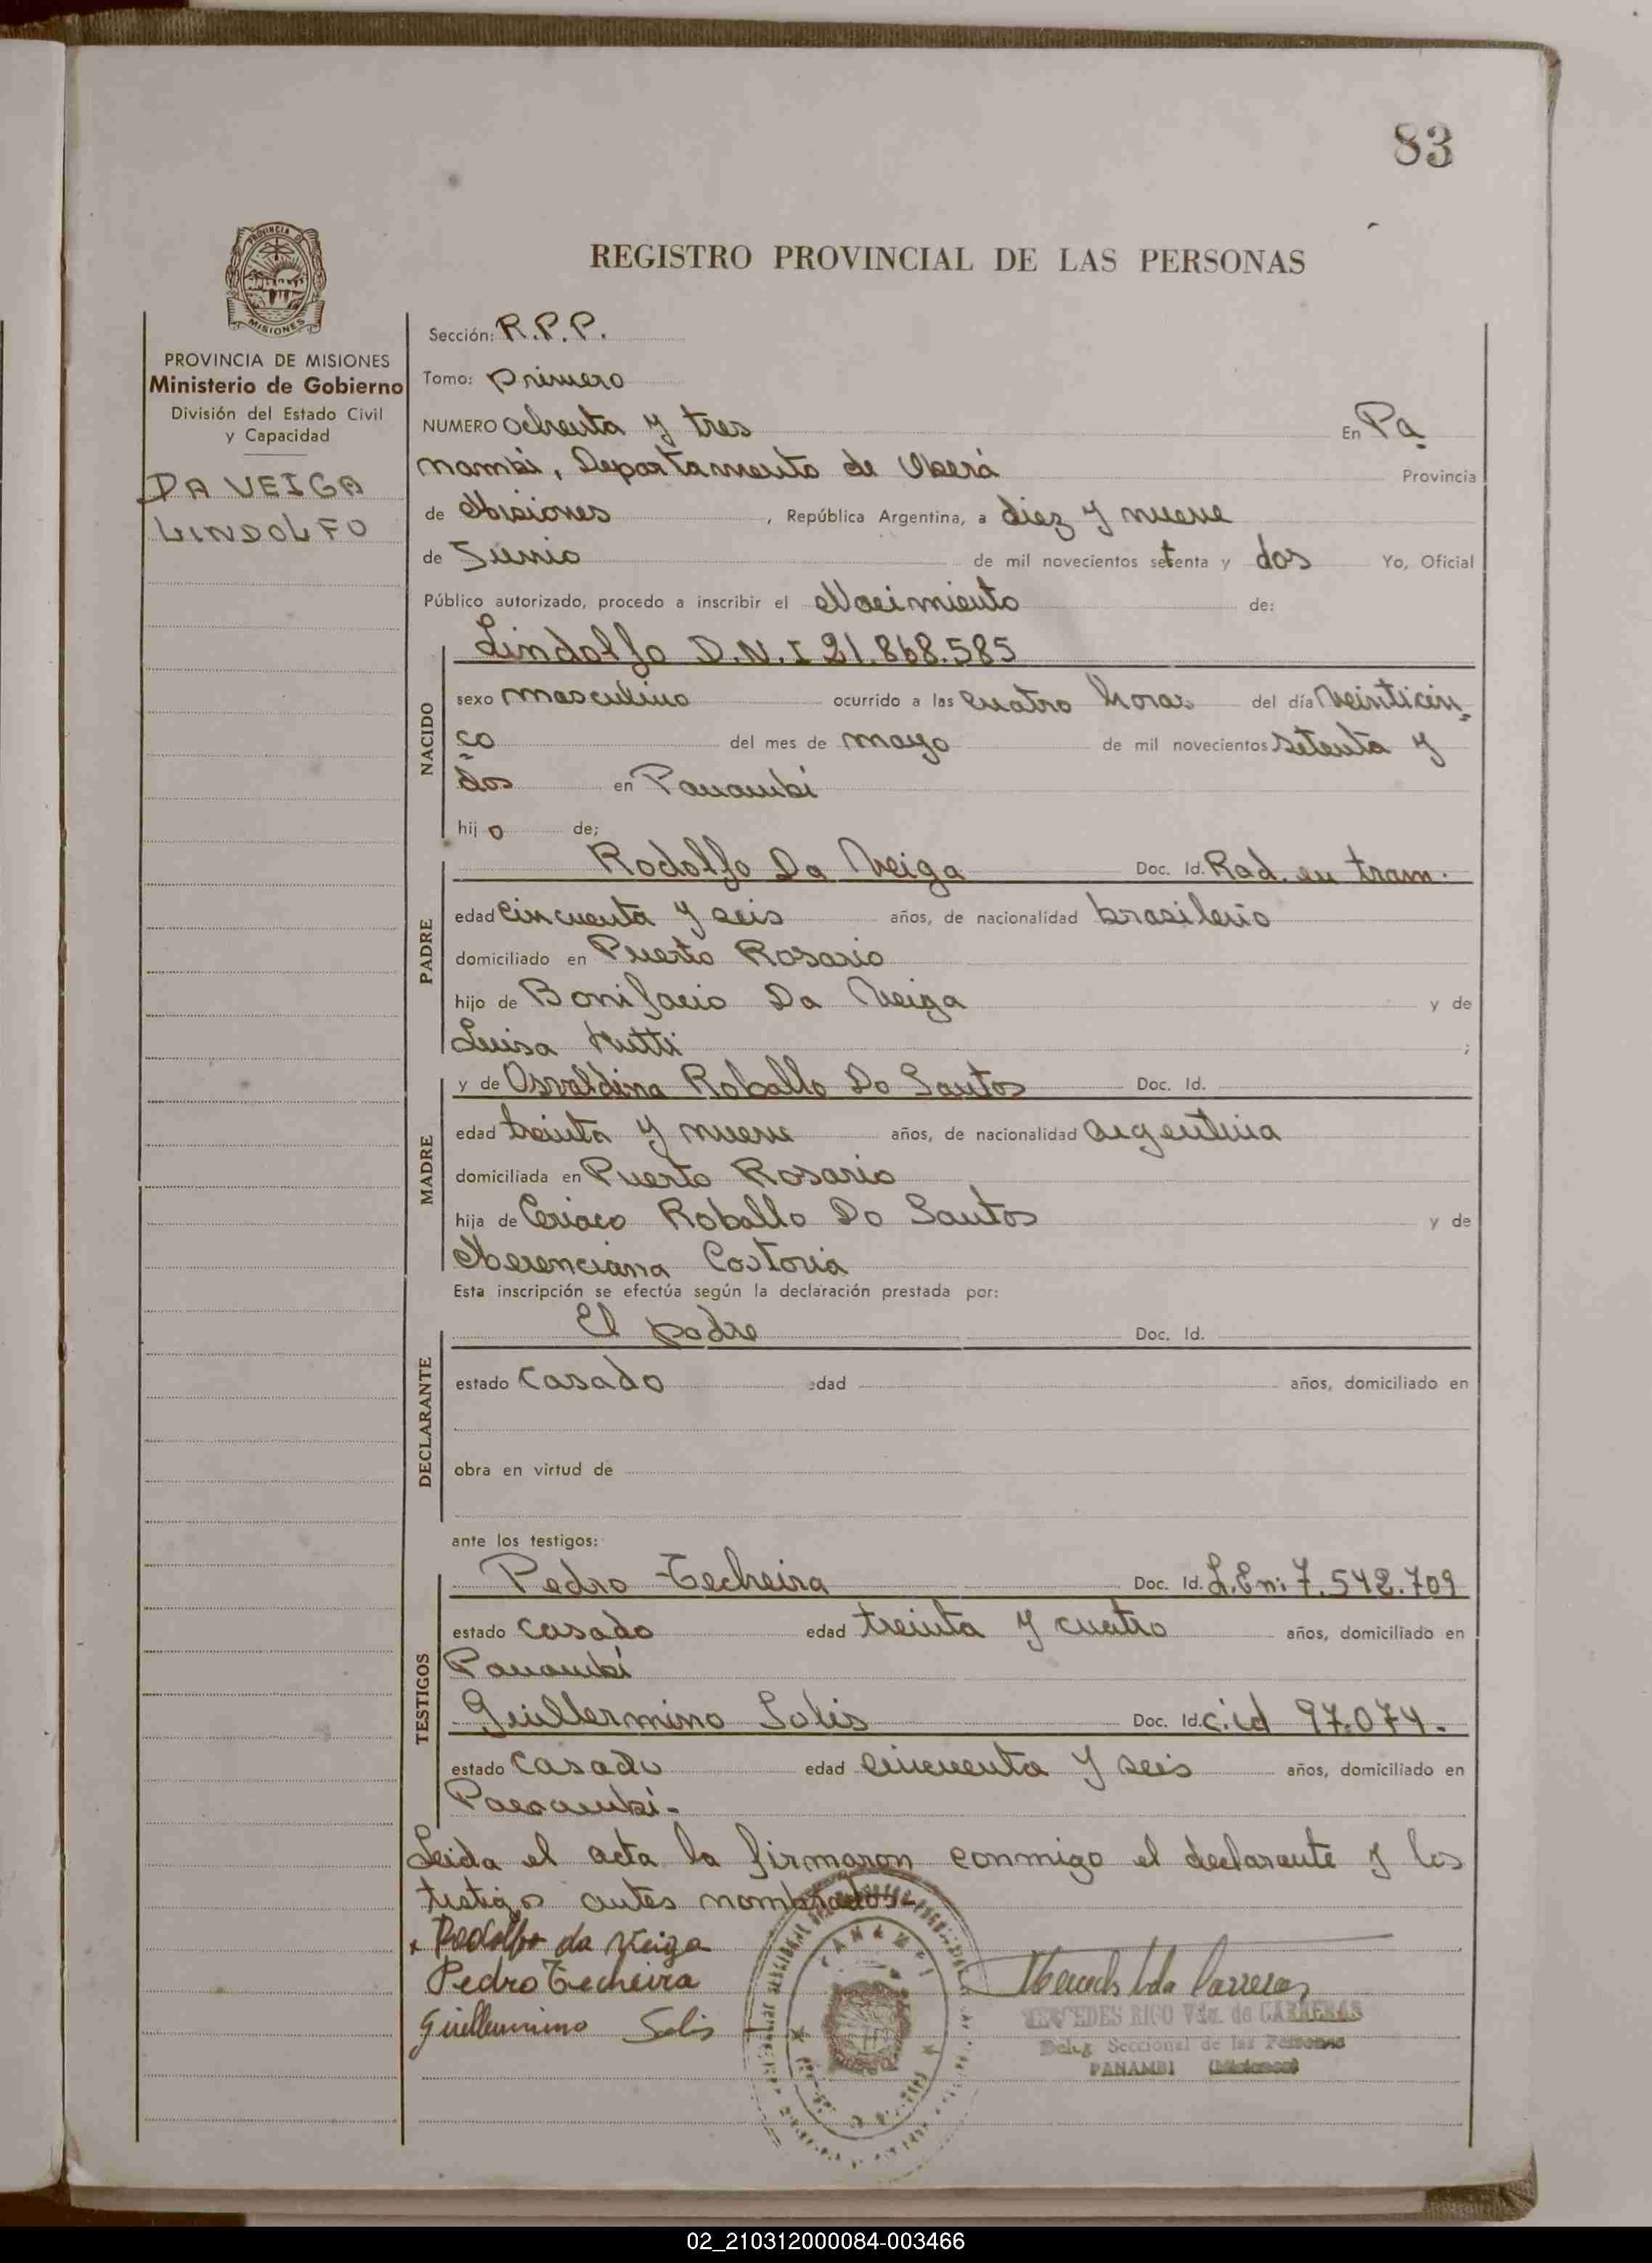 83
REGISTRO PROVINCIAL DE LAS PERSONAS
PROVINCIA DE
MISIONES
PROVINCIA DE MISIONES
Ministerio de Gobierno
División del Estado Civil
y Capacidad
DA VEIGA
LINDOLFO
Sección: R.P.P.
Tomo: primero
NUMERO ochenta y tres En Pa
nambí, Departamento de Oberá Provincia
de Misiones, República Argentina, a diez y nueve
de Junio de mil novecientos setenta y dos Yo, Oficial
Público autorizado, procedo a inscribir el Nacimiento de:
NACIDO
Lindolfo D.N.I 21.868.585
sexo masculino ocurrido a las cuatro horas del día veinticin-
co del mes de mayo de mil novecientos setenta y
dos en Panambí
hijo de;
PADRE
Rodolfo Da Veiga Doc. Id. Rad. en tram.
edad cincuenta y seis años, de nacionalidad brasileño
domiciliado en Puerto Rosario
hijo de Bonifacio Da Veiga y de
Luisa ;
MADRE
y de Osvaldina Roballo Do Santos Doc. Id.
edad treinta y nueve años, de nacionalidad argentina
domiciliada en Puerto Rosario
hija de Roballo Do Santos y de
Merenciana
Esta inscripción se efectúa según la declaración prestada por:
DECLARANTE
El padre Doc. Id.
estado casado edad años, domiciliado en
obra en virtud de
ante los testigos:
TESTIGOS
Pedro Techeira Doc. Id. L.En: 7.542.709
estado casado edad treinta y cuatro años, domiciliado en
Panambí
Guillermino Solis Doc. Id. c.id 97.074.
estado casado edad cincuenta y seis años, domiciliado en
Panambí-
Leida el acta la firmaron conmigo el declarante y los
testigos antes nombrados-
Rodolfo da Veiga
Pedro Techeira
Guillermino Solis
PANAMBI
MERCEDES RICO Vda. de CARRERAS
Deleg. Seccional de las Personas
PANAMBI (Misiones)
02_210312000084-003466